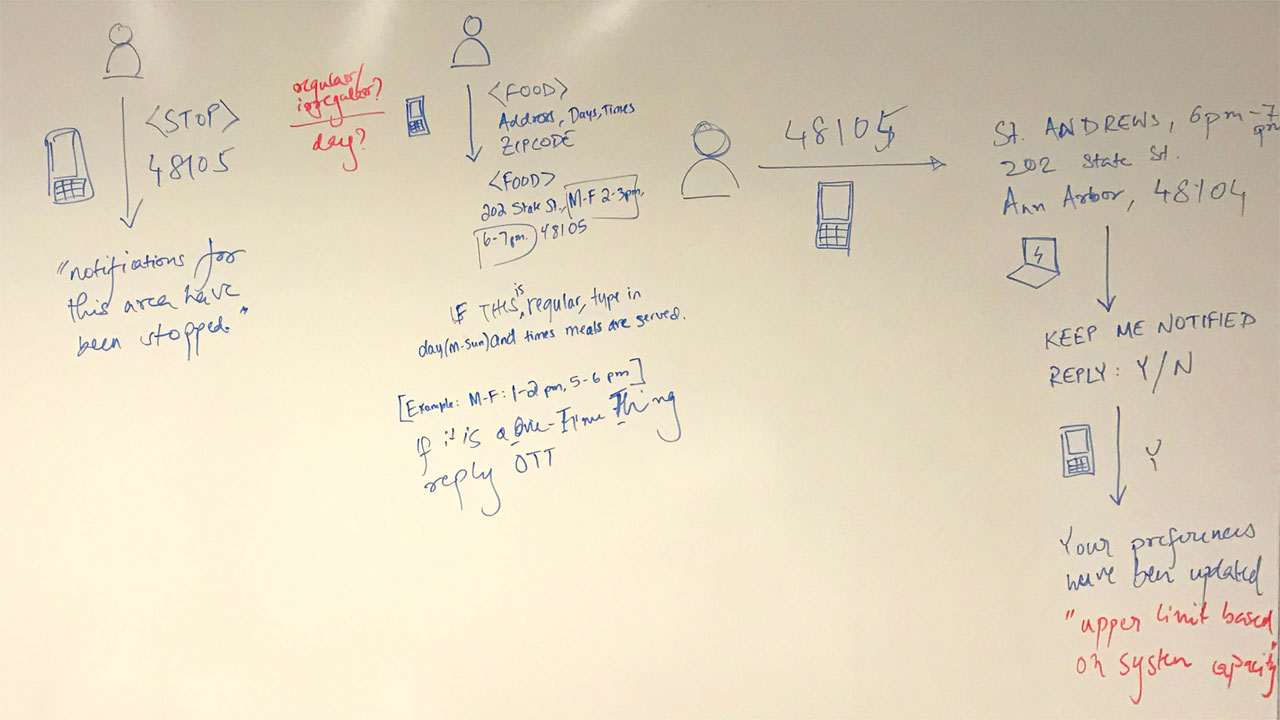 <STOP>
48105
"notifications for
this area have
been stopped."
regular/
irregular?
day?
<FOOD>
Address, Days, Times
ZIPCODE
<FOOD>
202 State St., M-F 2-3pm,
6-7pm. 48105
IF THIS is regular, type in
day(m-sun) and times meals are served.
[Example: M-F: 1-2 pm, 5-6 pm]
If it is a One-Time Thing
reply OTT
48105
St. ANDREWS, 6pm-7
pm
202 State St.
Ann Arbor, 48104
KEEP ME NOTIFIED
REPLY: Y/N
Y
Your preferences
have been updated
"upper limit based
on system capacity"